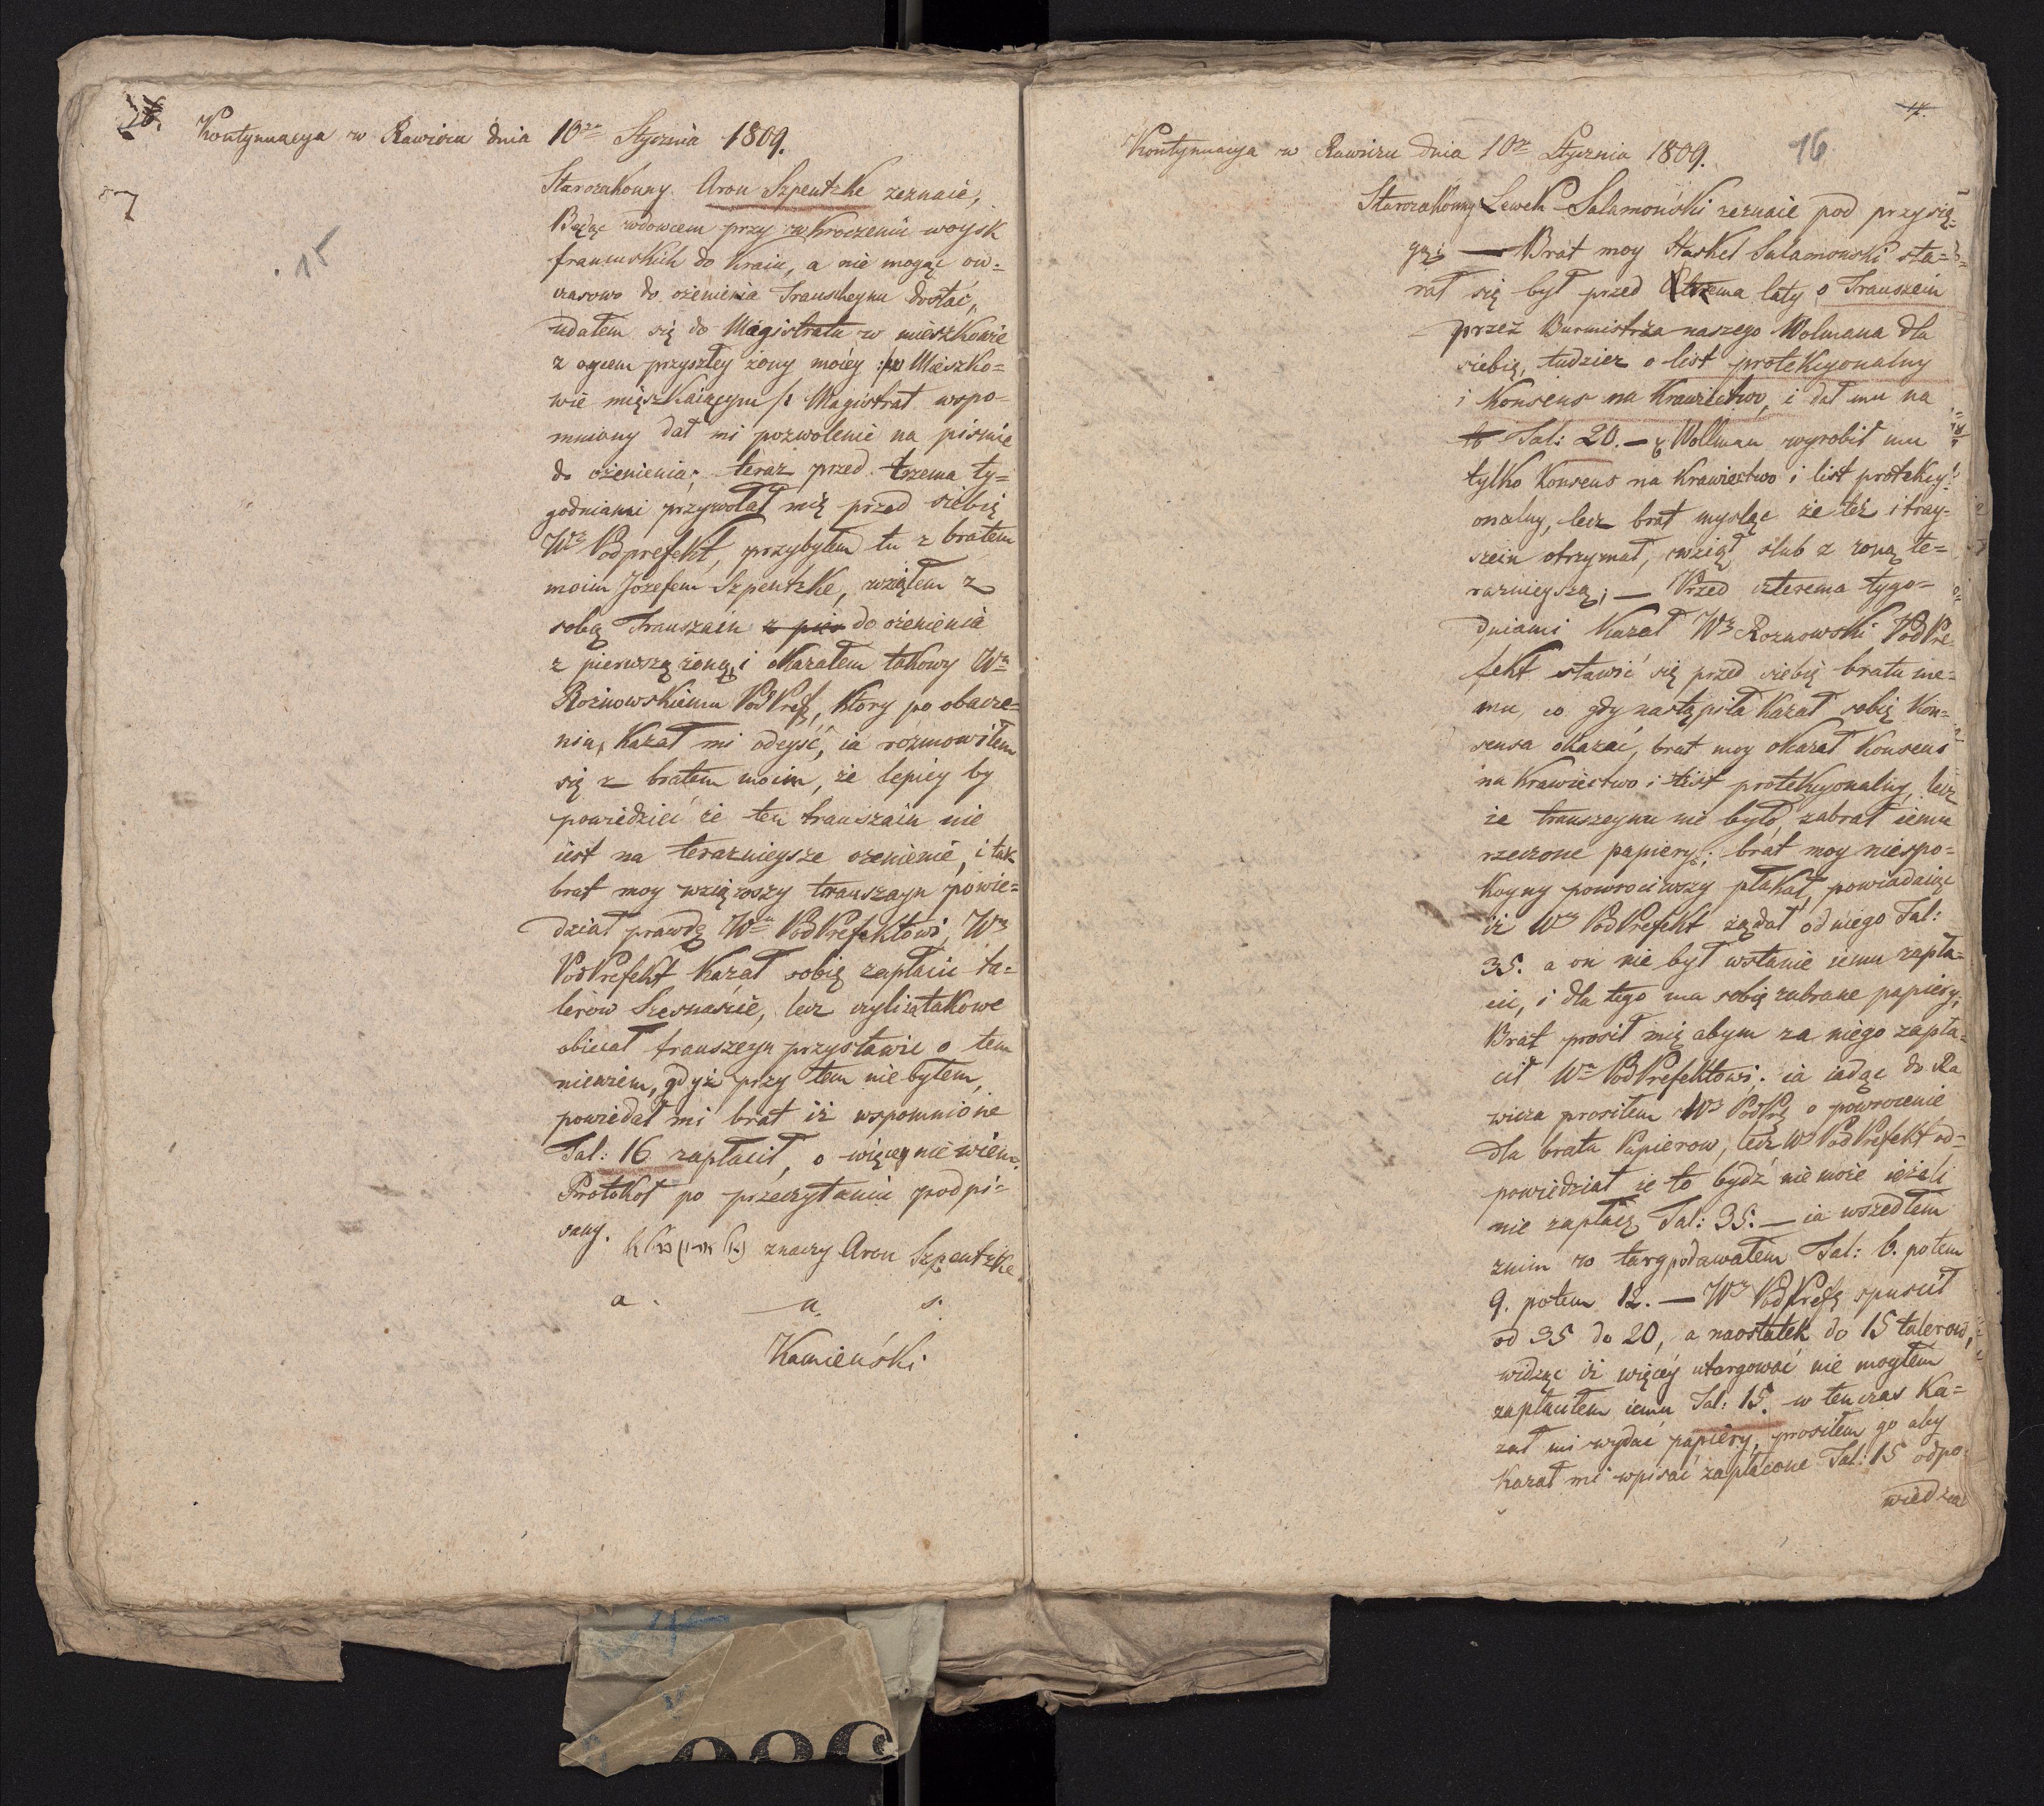 Kontynuacya w Rawiczu dnia 10go Stycznia 1809.
7
15
Starozakonny Aron Szpentzke zeznaie,
Będąc wdowcem przy wkroczeniu woysk
francuskich do kraiu, a nie mogąc ow-
czasowo do ożenienia Trauscheynu dostać,
udałem się do Magistratu w mieszkowie
z oycem przyszłey żony moiéy :/w Mieszko=
wie mięszkaiącym /: Magistrat wspo-
mniony dał mi pozwolenie na pismie
do ożenienia; teraz przed trzema ty=
godniami przywołał mię przed siebię
Wny Podprefekt, przybyłem tu z bratem
moim Józefem Szpentzke, wziąłem z
sobą Trauszain z pier do ożenienia
z pierwszą żoną, i okazałem takowy Wmu
Rożnowskiemu PodPref, ktory po obacze-
niu, kazał mi odeyść, ia rozmowiłem
się z bratem moim, że lepiéy by
powiedzieć że ten trauszain nie
iest na teraznieysze ożenienie, i tak
brat moy wziąwszy trauszayn powie=
dział prawdę Wmu PodPrefektowi, Wny
PodPrefekt kazał sobię zapłacić ta=
lerow Szesnaście, lecz czyli za takowe
obiecał trauszeyn przystawić o tem
niewiem, gdyż przy tem nie byłem,
powiedał mi brat iż wspomnione
Tal: 16 zapłacił, o więcey nie wiem.
Protokoł po przeczytaniu podpi=
sany.
znaczy Aron Szpentzke
a. u. s.
Kamieński
Kontynuacya w Rawiczu dnia 10go Stycznia 1809.
16
Starozakonny Lewek Salamoński zeznaie pod przysię=
gą; — Brat moy Haskel Salamonski sta=
rał się był przed trzema laty o Trauszein
przez Burmistrza naszego Wolmana dla
siebię, tudzież o list protekcyonalny
i Konsens na Krawiectwo, i dał mu na
to Tal: 20. — Wollman wyrobił mu
tylko Konsens na Krawiectwo i list protekcy=
onalny, lecz brat mysląc że też i tray-
szein otrzymał, wziął ślub z żoną te=
raznieyszą; — Przed czterema tygo=
dniami kazał Wny Roznowski PodPre
fekt stawić się przed siebię bratu me=
mu, co gdy nastąpiła kazał sobię Kon=
sensa okazać, brat moy okazał Konsens
na Krawiectwo i list protekcyonalny, lecz
że trauszeynu nie było, zabrał iemu
rzeczone papiery; brat moy niespo=
koyny powrociwszy płakał, powiadaiąc
iż Wny PodPrefekt żądał od niego Tal:
35. a on nie był wstanie iemu zapła=
cić, i dla tego ma sobię zabrane papiery;
Brat prosił mię abym za niego zapła=
cił Wmu PodPrefektowi; ia iadąc do Ra
wicza prosiłem Wny PodPrę o powrocenie
dla brata Papierow, lecz Wny PodPrefekt od=
powiedział że to bydź nie może iężeli
nie zapłacę Tal: 35. — ia wszedłem
znim w targ podawałem Tal: 6. potem
9. potem 12. — Wny PodPrefę spuscił
od 35 do 20, a naostatek do 15 talerow,
widząc iż więcéy utargować nie mogłem
zapłaciłem iemu Tal: 15. w ten czas Ka=
zał mi wydać papiery, prosiłem go aby
Kazał mi wpisać zapłacone Tal: 15 odpo
wiedział